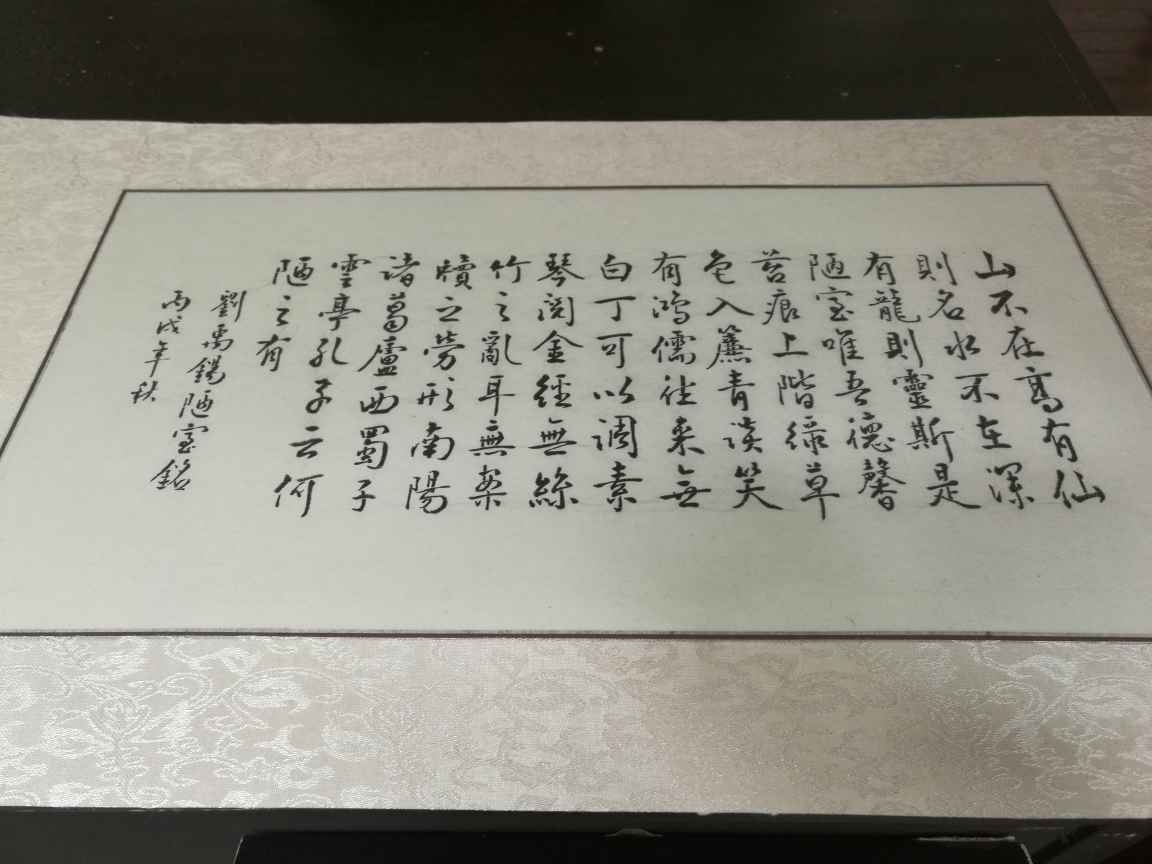 山不在高有仙
則名水不在深
有龍則靈斯是
陋室唯吾德馨
苔痕上階綠草
色入簾青談笑
有鴻儒往來無
白丁可以調素
琴閱金經無絲
竹之亂耳無案
牘之勞形南陽
諸葛廬西蜀子
雲亭孔子云何
陋之有
劉禹錫陋室銘
丙戌年秋